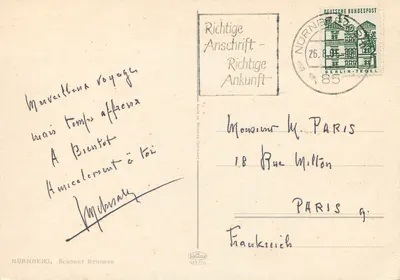 Richtige
Anschrift –
Richtige
Ankunft
NÜRNBERG
85
DEUTSCHE BUNDESPOST
BERLIN-TEGEL
Merveilleux voyage
mais temps affreux
A Bientôt
Amicalement à toi
Monsieur M. PARIS
18 Rue Milton
PARIS 9.
Frankreich
NÜRNBERG, Schöner Brunnen